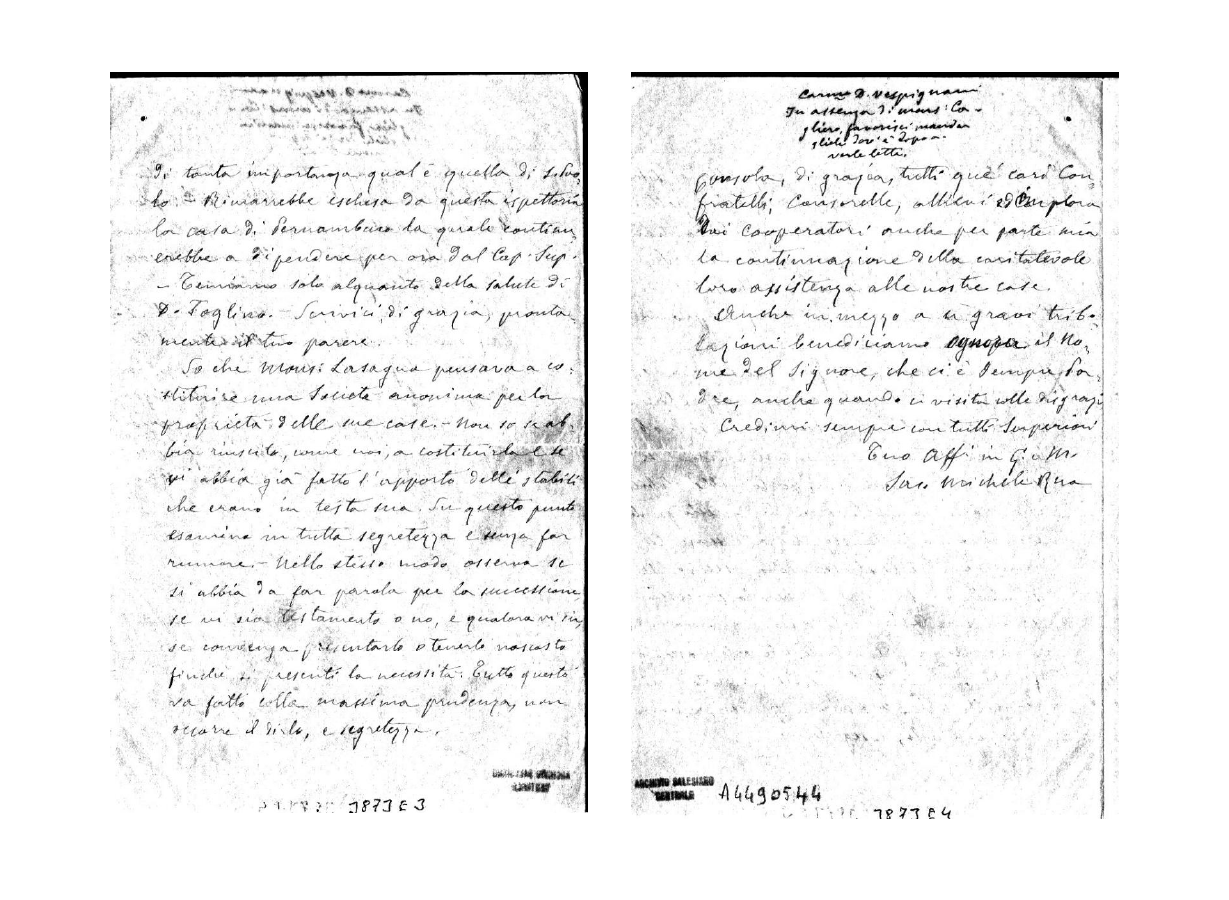 di tanta importanza qual'è quella di S. Pao-
lo. - Rimarrebbe esclusa da questa ispettoria
la casa di Pernambuco la quale continu-
erebbe a dipendere per ora dal Cap. Sup.
- Temiamo solo alquanto della salute di
D. Foglino. - Scrivici, di grazia, pronta-
mente il tuo parere.
So che Mons: Lasagna pensava a co-
stituire una Società anonima per la
proprietà delle sue case. - Non so se ab-
bia riuscito, come noi, a costituirla e se
vi abbia già fatto l'apporto delle stabili
che erano in testa sua. Su questo punto
esamina in tutta segretezza e senza far
rumore. - Nello stesso modo osserva se
si abbia da far parola per la successione,
se vi sia testamento o no, e qualora vi sia,
se convenga presentarlo o tenerlo nascosto
finchè si presenti la necessità. Tutto questo
va fatto colla massima prudenza, non
occorre il dirlo, e segretezza.
J873E3
Carmo D. Vespignani
In assenza di mons: Ca-
gliero, favorisci mandar
gliela dov'è dopo a-
verle lette.
Consola, di grazia, tutti que' cari Con-
fratelli, Consorelle, allievi ed implora
dai Cooperatori anche per parte mia
la continuazione della caritatevole
loro assistenza alle nostre case.
Anche in mezzo a sì gravi tribo-
lazioni benediciamo ognora il No-
me del Signore, che ci è sempre Pa-
dre, anche quando ci visita colle disgrazie
Credimi sempre con tutti Superiori
Tuo Aff. in G. e M.
Sac. Michele Rua
ARCHIVIO SALESIANO
CENTRALE
A4490544
J873E4